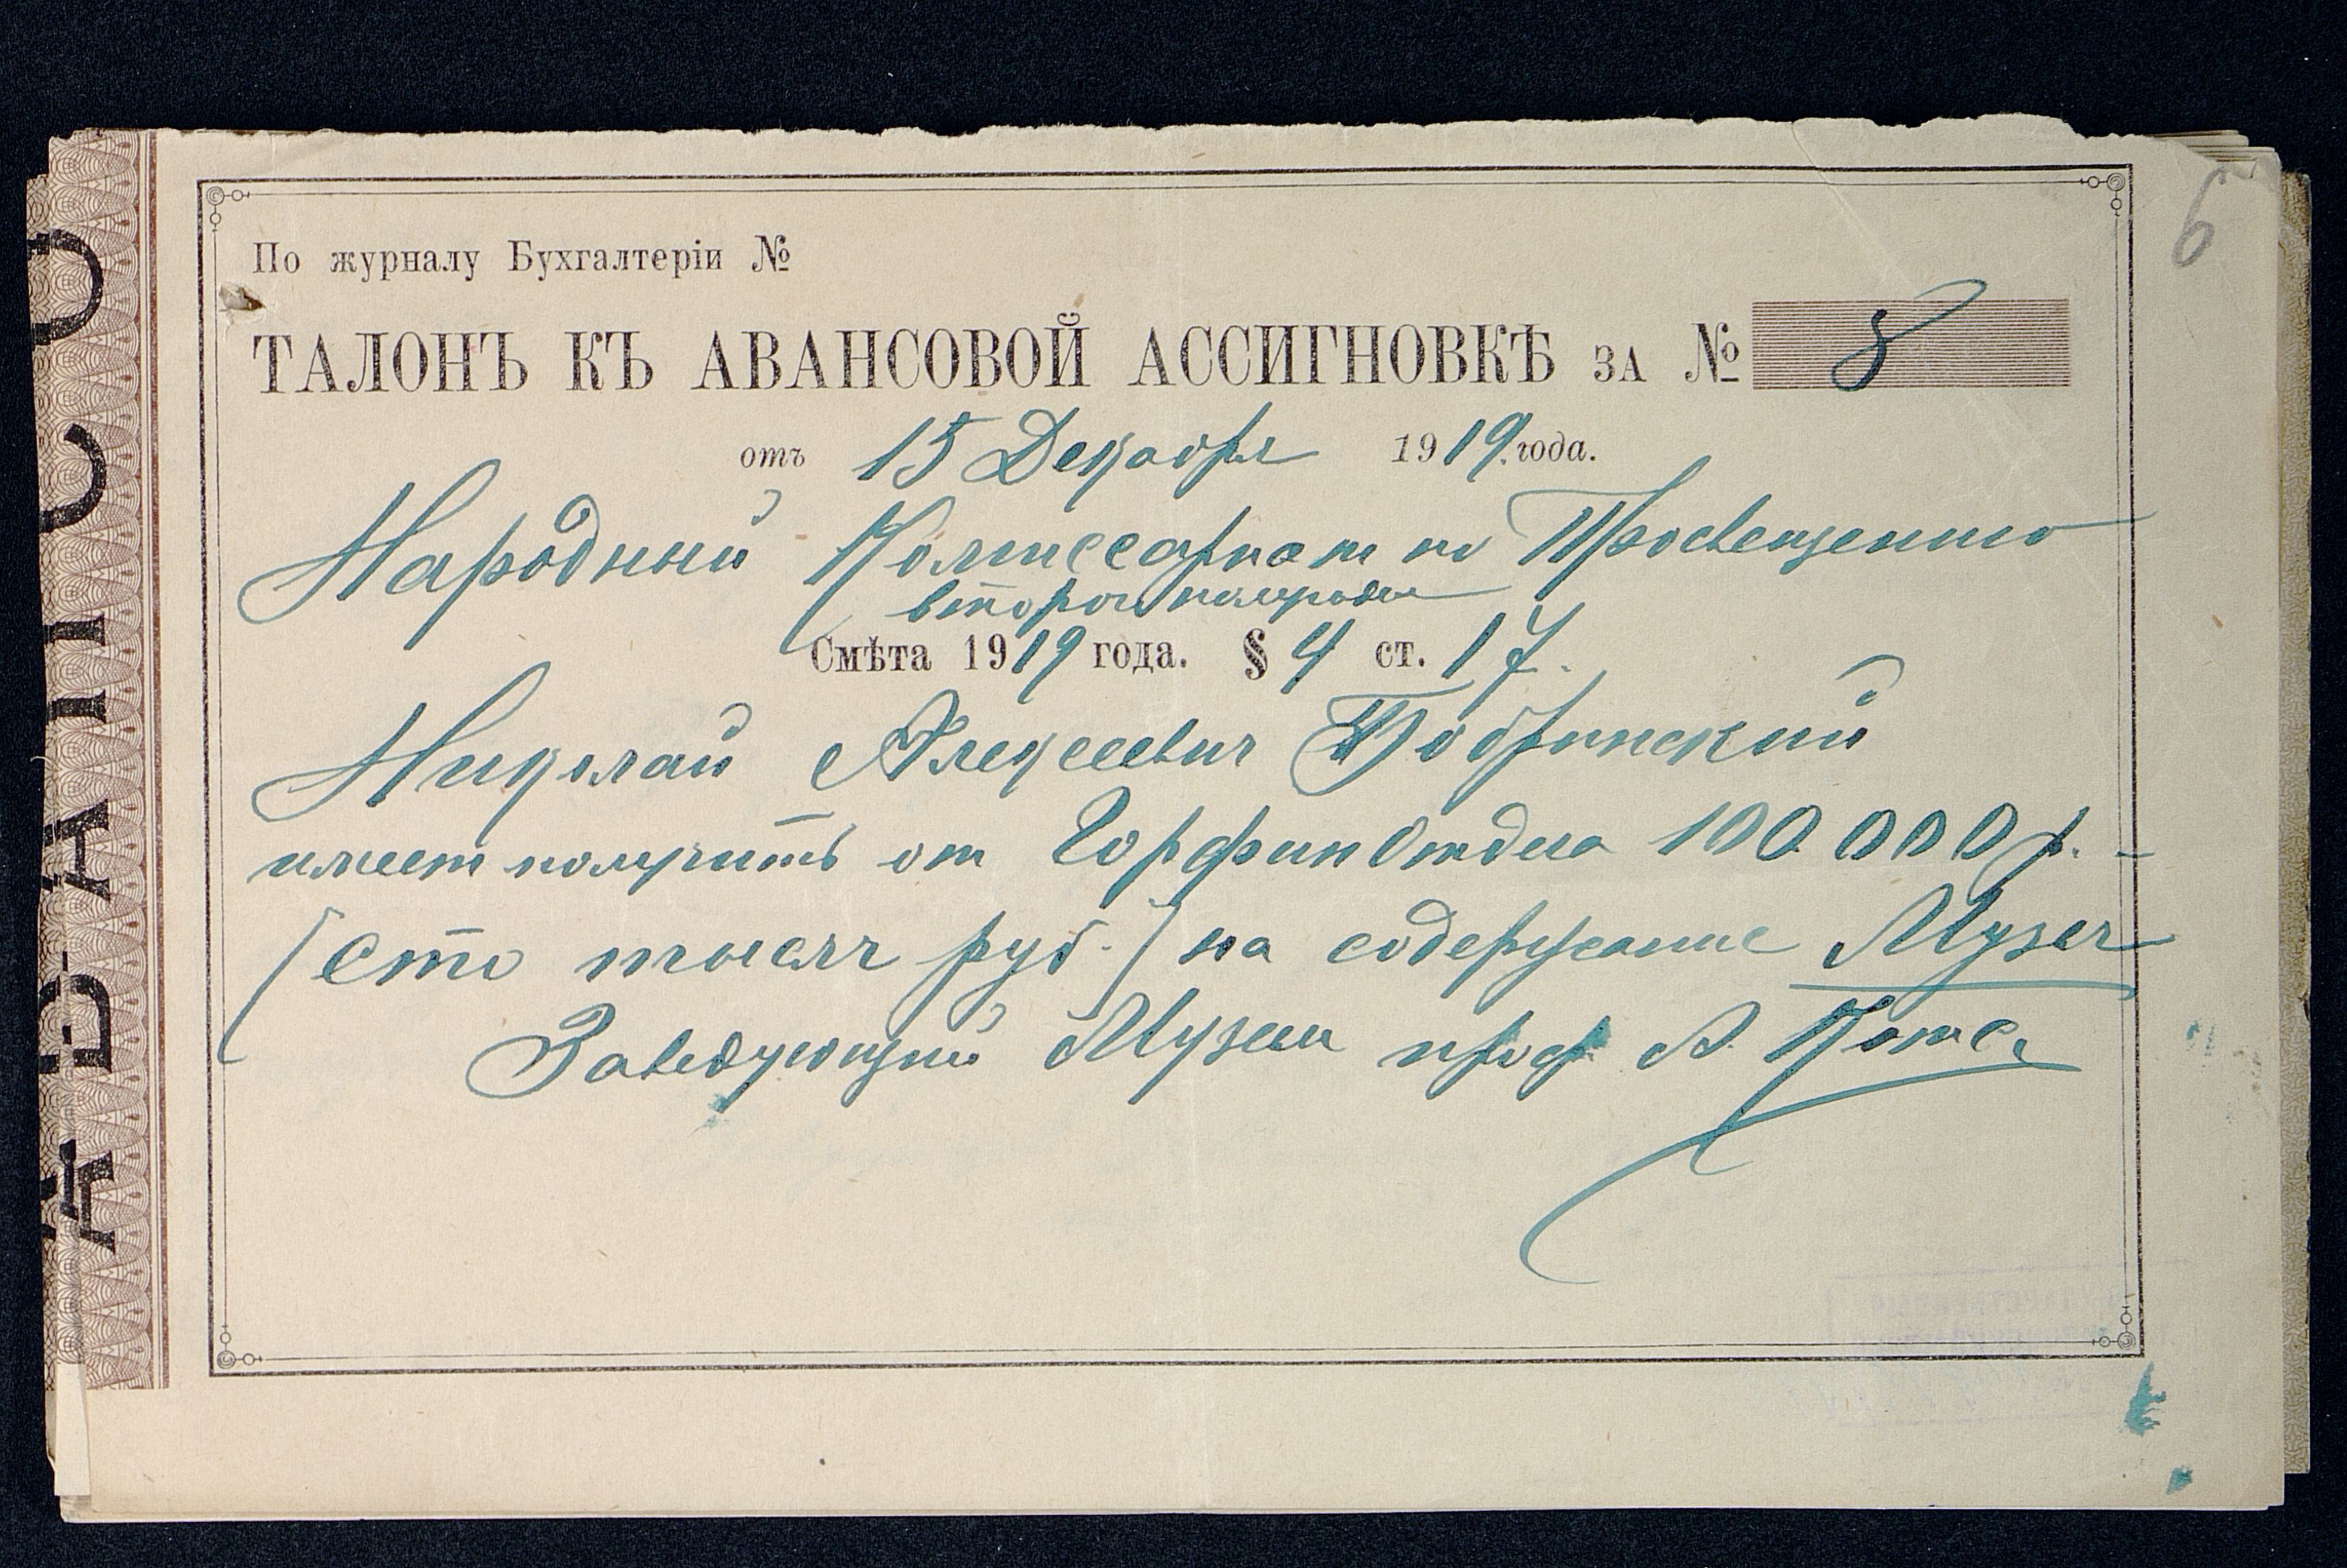 6
По журналу Бухгалтеріи №
ТАЛОНЪ КЪ АВАНСОВОЙ АССИГНОВКѢ ЗА № 8
отъ 15 Декабря 1919 года.
Народный Комиссариат по Просвещению
второе полугодие
Смѣта 1919 года. § 4 ст. 17.
Николай Алексеевич Бобринский
имеет получить от ГорфинОтдела 100.000 р. –
(сто тысяч руб.) на содержание Музея
Заведующий Музеем проф А. Котс.